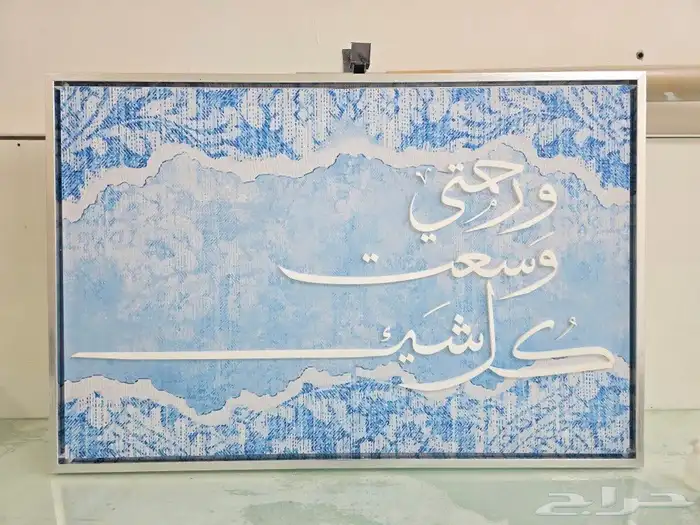 ورحمتي
وَسعت
كُل شَيئ
حراج